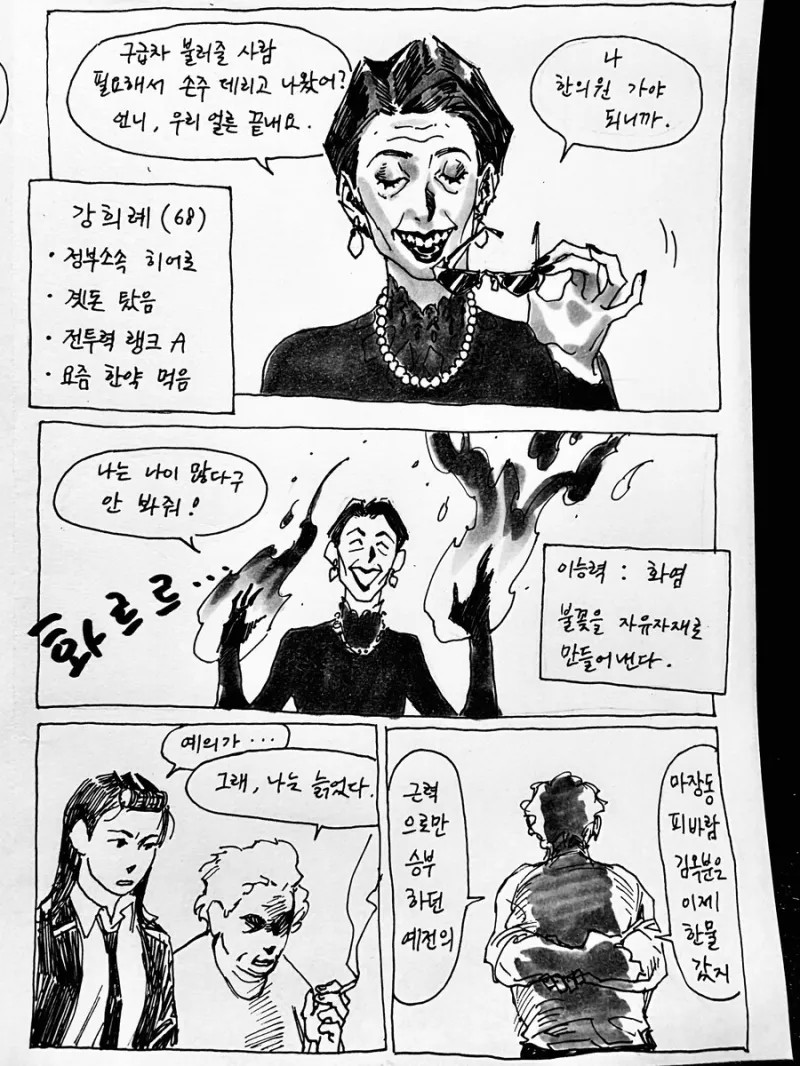 구급차 불러줄 사람
필요해서 손주 데리고 나왔어?
언니, 우리 얼른 끝내요.
나
한의원 가야
되니까.
강희례 (68)
· 정부소속 히어로
· 곗돈 탔음
· 전투력 랭크 A
· 요즘 한약 먹음
나는 나이 많다구
안 봐줘!
화르르...
이능력 : 화염
불꽃을 자유자재로
만들어낸다.
예의가 ...
그래, 나는 늙었다.
근력
으로만
승부
하던
예전의
마장동
피바람
김옥분은
이제
한물
갔지